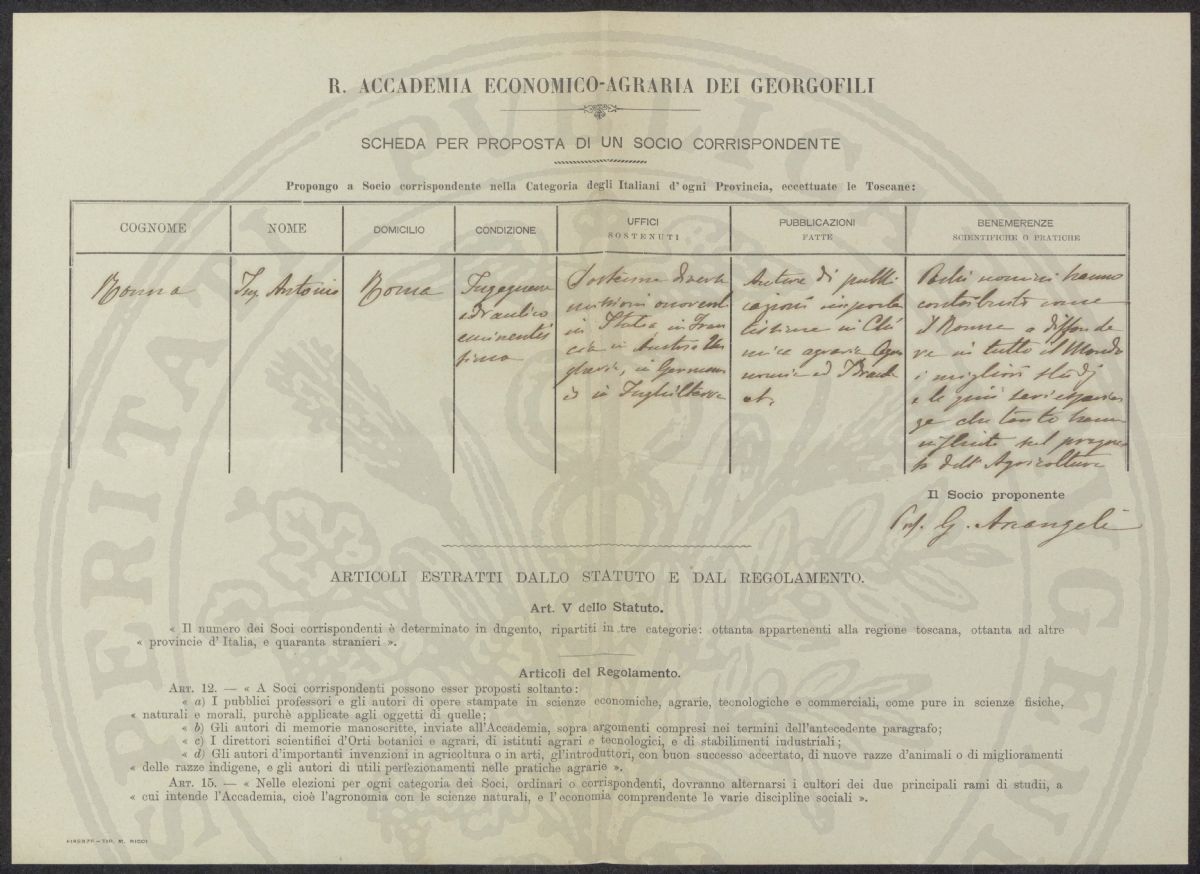 R. ACCADEMIA ECONOMICO-AGRARIA DEI GEORGOFILI
SCHEDA PER PROPOSTA DI UN SOCIO CORRISPONDENTE
Propongo a Socio corrispondente nella Categoria degli Italiani d'ogni Provincia, eccettuate le Toscane:
COGNOME
NOME
DOMICILIO
CONDIZIONE
UFFICI
SOSTENUTI
PUBBLICAZIONI
FATTE
BENEMERENZE
SCIENTIFICHE O PRATICHE
Ronna
Ing. Antonio
Roma
Ingegnere
idraulico
eminentis
simo
Sostenne diverse
missioni onorevoli
in Italia, in Fran
cia in Austria Un
gheria, in Germania
e in Inghilterra
Autore di pubbli
cazioni importa
tissime in Chi
mica agraria Agro
nomia ed Idraul
Pochi uomini hanno
contribuito come
il Ronna a diffonde
re in tutto il Mondo
i migliori studj
e le più serie esperien
ze che tanto hanno
influito sul progres
so dell'Agricoltura
Il Socio proponente
Prof. G. Arcangeli
ARTICOLI ESTRATTI DALLO STATUTO E DAL REGOLAMENTO.
Art. V dello Statuto.
« Il numero dei Soci corrispondenti è determinato in dugento, ripartiti in tre categorie: ottanta appartenenti alla regione toscana, ottanta ad altre
« provincie d'Italia, e quaranta stranieri ».
Articoli del Regolamento.
ART. 12. — « A Soci corrispondenti possono esser proposti soltanto:
« a) I pubblici professori e gli autori di opere stampate in scienze economiche, agrarie, tecnologiche e commerciali, come pure in scienze fisiche,
« naturali e morali, purchè applicate agli oggetti di quelle;
« b) Gli autori di memorie manoscritte, inviate all'Accademia, sopra argomenti compresi nei termini dell'antecedente paragrafo;
« c) I direttori scientifici d'Orti botanici e agrari, di istituti agrari e tecnologici, e di stabilimenti industriali;
« d) Gli autori d'importanti invenzioni in agricoltura o in arti, gl'introduttori, con buon successo accertato, di nuove razze d'animali o di miglioramenti
« delle razze indigene, e gli autori di utili perfezionamenti nelle pratiche agrarie ».
ART. 15. — « Nelle elezioni per ogni categoria dei Soci, ordinari o corrispondenti, dovranno alternarsi i cultori dei due principali rami di studii, a
« cui intende l'Accademia, cioè l'agronomia con le scienze naturali, e l'economia comprendente le varie discipline sociali ».
FIRENZE - TIP. M. RICCI